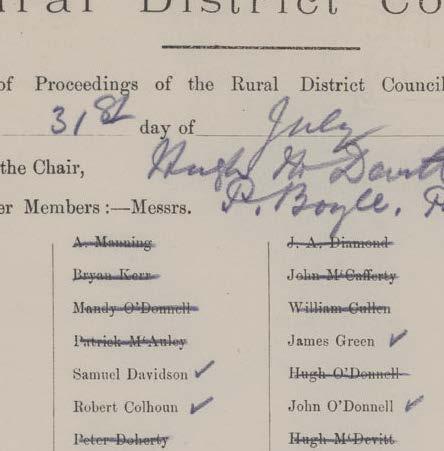 ral District Co
of Proceedings of the Rural District Council
31st day of July
the Chair, Hugh
er Members :—Messrs. P. Boyle,
A. Manning
Bryan Kerr
Mandy O'Donnell
Patrick McAuley
Samuel Davidson ✓
Robert Colhoun ✓
Peter Doherty
J. A. Diamond
John McCafferty
William Cullen
James Green ✓
Hugh O'Donnell
John O'Donnell ✓
Hugh McDevitt